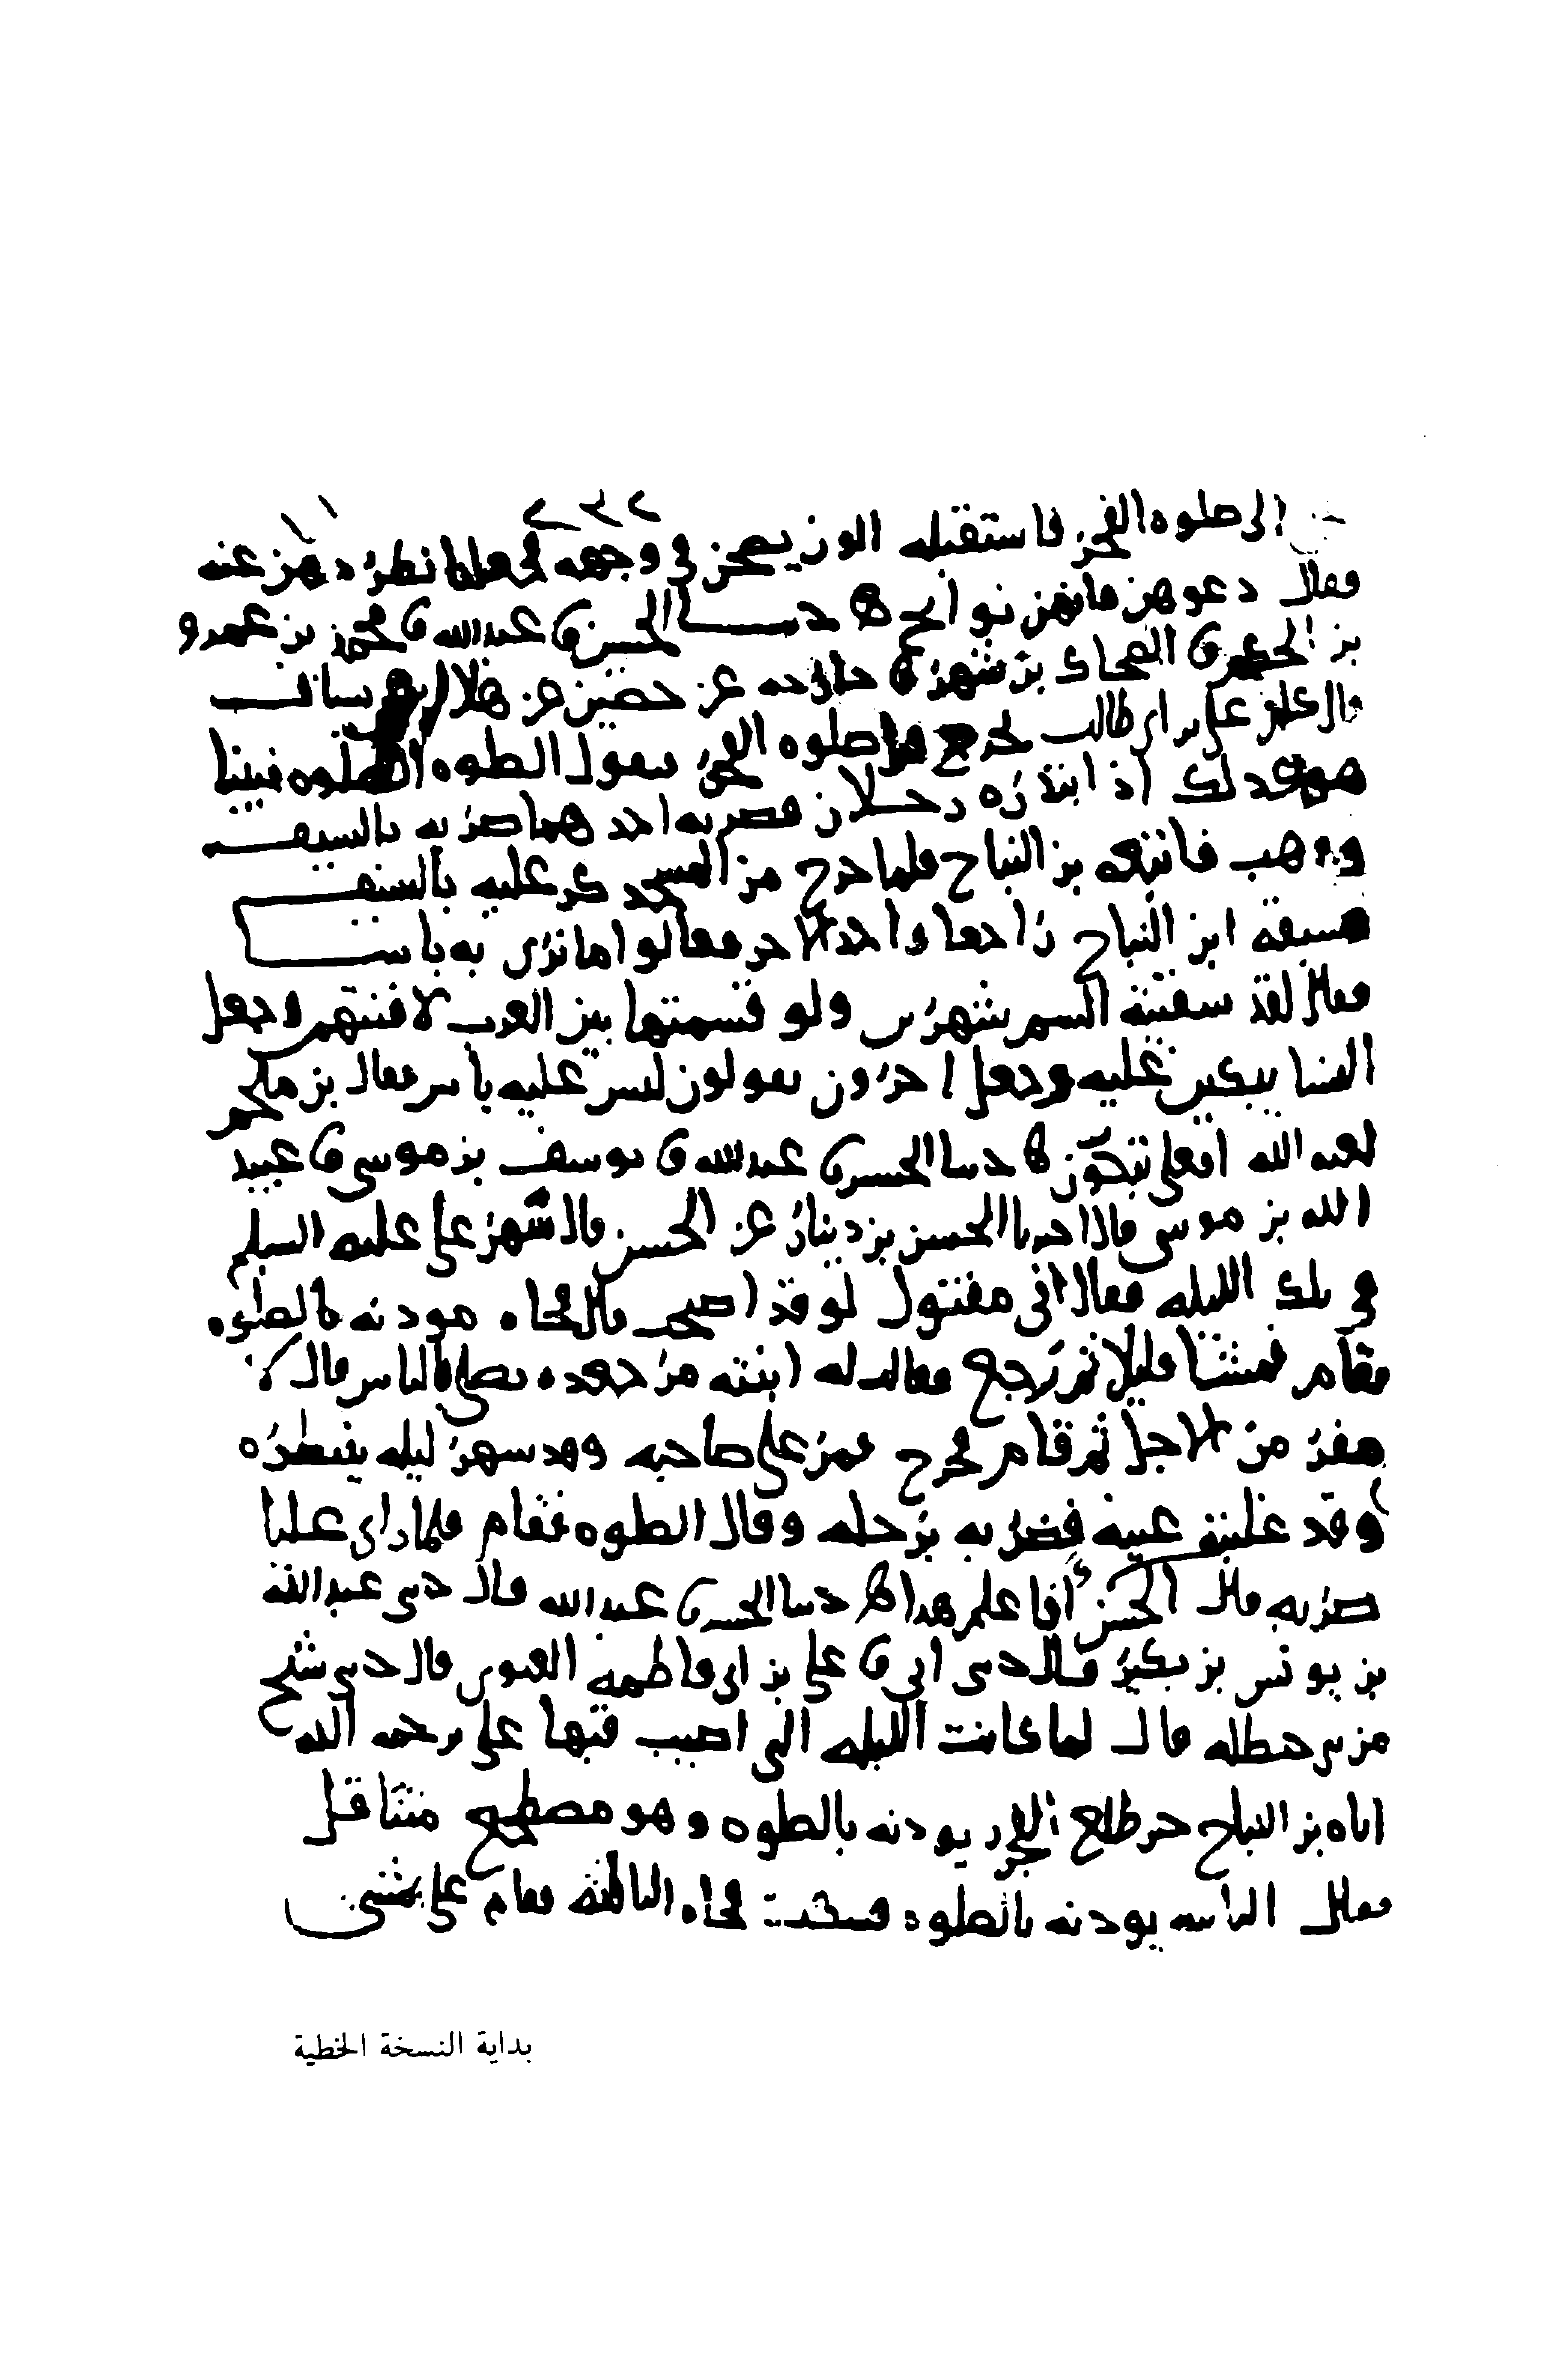 الى صلوه الفجر فاستقبله الوز يصحن في وجهه فجعلنا نطرد هن عنه
فقال دعوهن فانهن نوائح ها حدثنا الحسين ق عبد الله ق محمد بن عمرو
بن الحكم ق الضحاك بن شهر ق خارجه عن حصين عن هلال بن يساف
قال كان علي بن ابي طالب يخرج الى صلوه الفجر يقول الصلوه الصلوه فبينا
هو كذلك اذ ابتدره رجلان فضربه احدهما ضربه بالسيف
وذهب فاتبعه بن النباح فلما خرج من المسجد كر عليه بالسيف
فسبقه ابن النباح راجعا واخذ الاخر فقالوا ما نرى به باسا
فقال لقد سقيته السم شهرين ولو قسمتها بين العرب لافنتهم وجعل
النسا يبكين عليه وجعل اخرون يقولون ليس عليه باس فقال بن ملجم
لعنه الله افعلي تبكون ها حدثنا الحسين ق عبد الله ق يوسف بن موسى ق عبيد
الله بن موسى قال اخبرنا الحسن بن دينار عن الحسن قال سهر علي عليه السلم
في تلك الليله فقال اني مقتول لو قد اصبحت قال فجاه موذنه بالصلوه
فقام فمشا قليلا ثم رجع فقالت له ابنته مر جعده يصلي بالناس قال لا
مفر من الاجل ثم قام فخرج فمر على صاحبه وقد سهر ليله ينتظره
وقد غلبته عينه فضربه برجله وقال الصلوه فقام فلما راى عليا
ضربه قال الحسن أما علم هذا ها حدثنا الحسين ق عبد الله قال حدثني عبد الله
بن يونس بن بكير قال حدثني ابي ق علي بن ابي فاطمه الغنوي قال حدثني شيخ
من بني حنظله قال لما كانت الليله التي اصيب فيها علي رحمه الله
اتاه بن النباح حين طلع الفجر يوذنه بالصلوه وهو مضطجع متثاقل
فقال الثانيه يوذنه بالصلوه فسكت فجاه الثالثه فقام علي يمشي
بداية النسخة الخطية